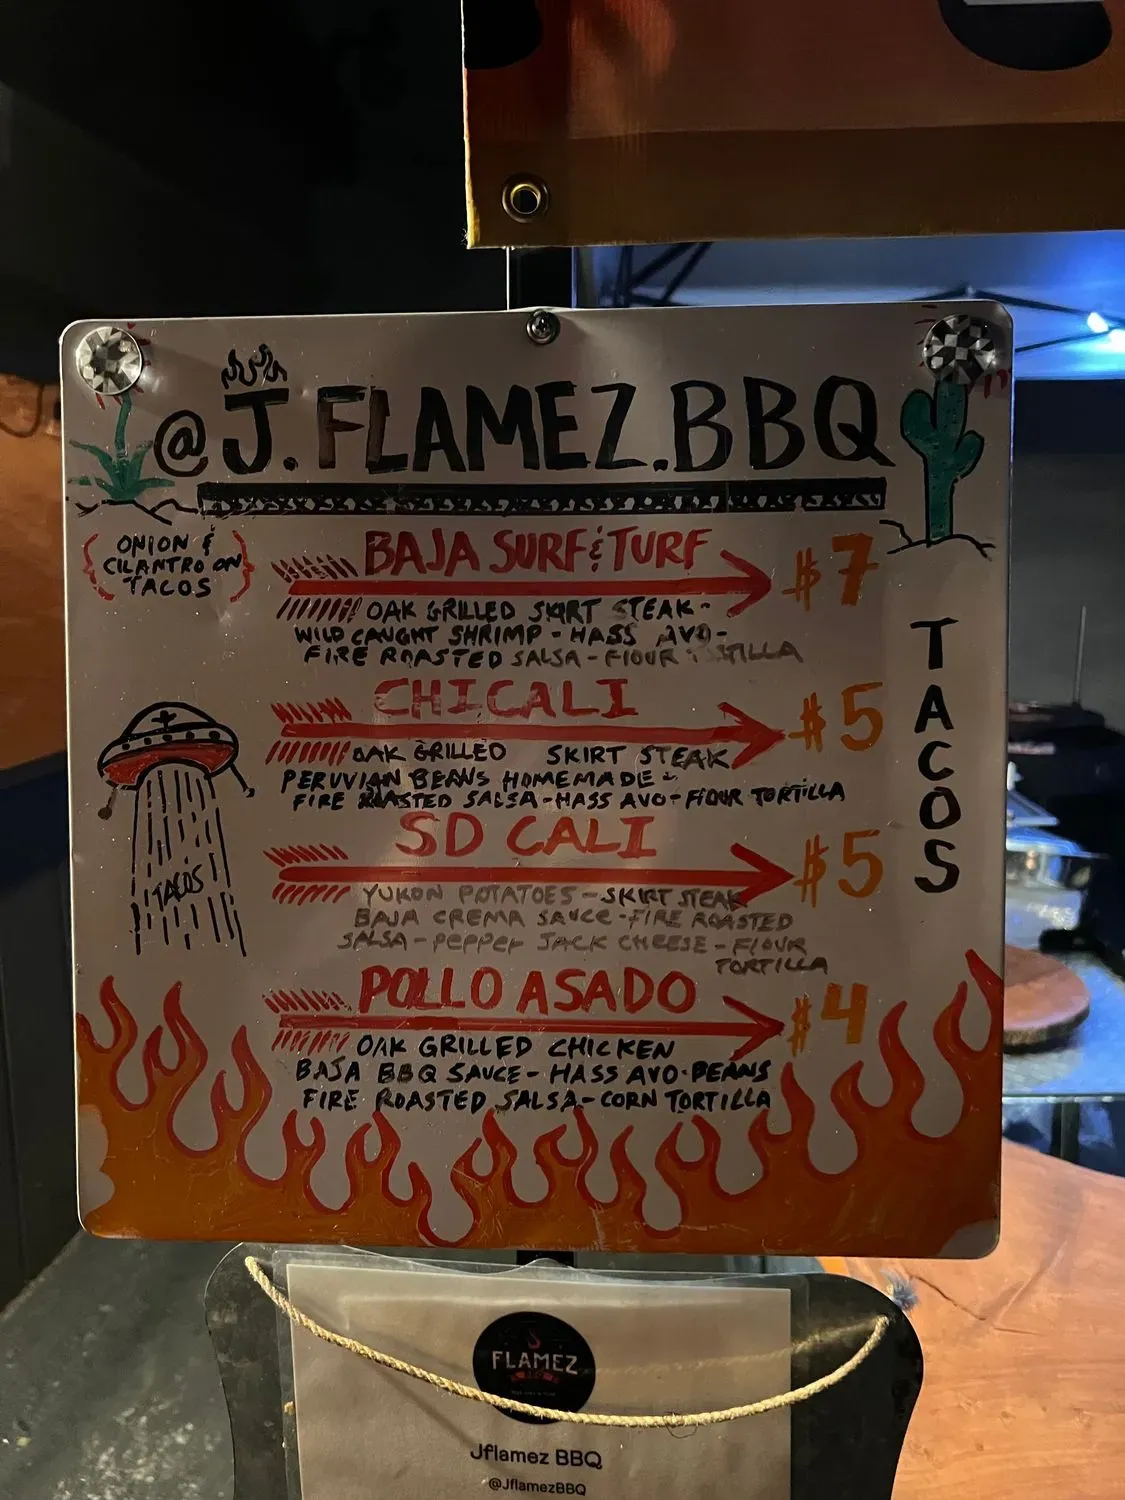 @J.FLAMEZ.BBQ
ONION &
CILANTRO ON
TACOS
BAJA SURF & TURF
$7
OAK GRILLED SKIRT STEAK-
WILD CAUGHT SHRIMP - HASS AVO-
FIRE ROASTED SALSA - FLOUR TORTILLA
CHICALI
$5
OAK GRILLED SKIRT STEAK
PERUVIAN BEANS HOMEMADE -
FIRE ROASTED SALSA - HASS AVO - FLOUR TORTILLA
SD CALI
$5
YUKON POTATOES - SKIRT STEAK
BAJA CREMA SAUCE - FIRE ROASTED
SALSA - PEPPER JACK CHEESE - FLOUR
TORTILLA
POLLO ASADO
$4
OAK GRILLED CHICKEN
BAJA BBQ SAUCE - HASS AVO - BEANS
FIRE ROASTED SALSA - CORN TORTILLA
TACOS
TACOS
J
FLAMEZ
Jflamez BBQ
@JflamezBBQ